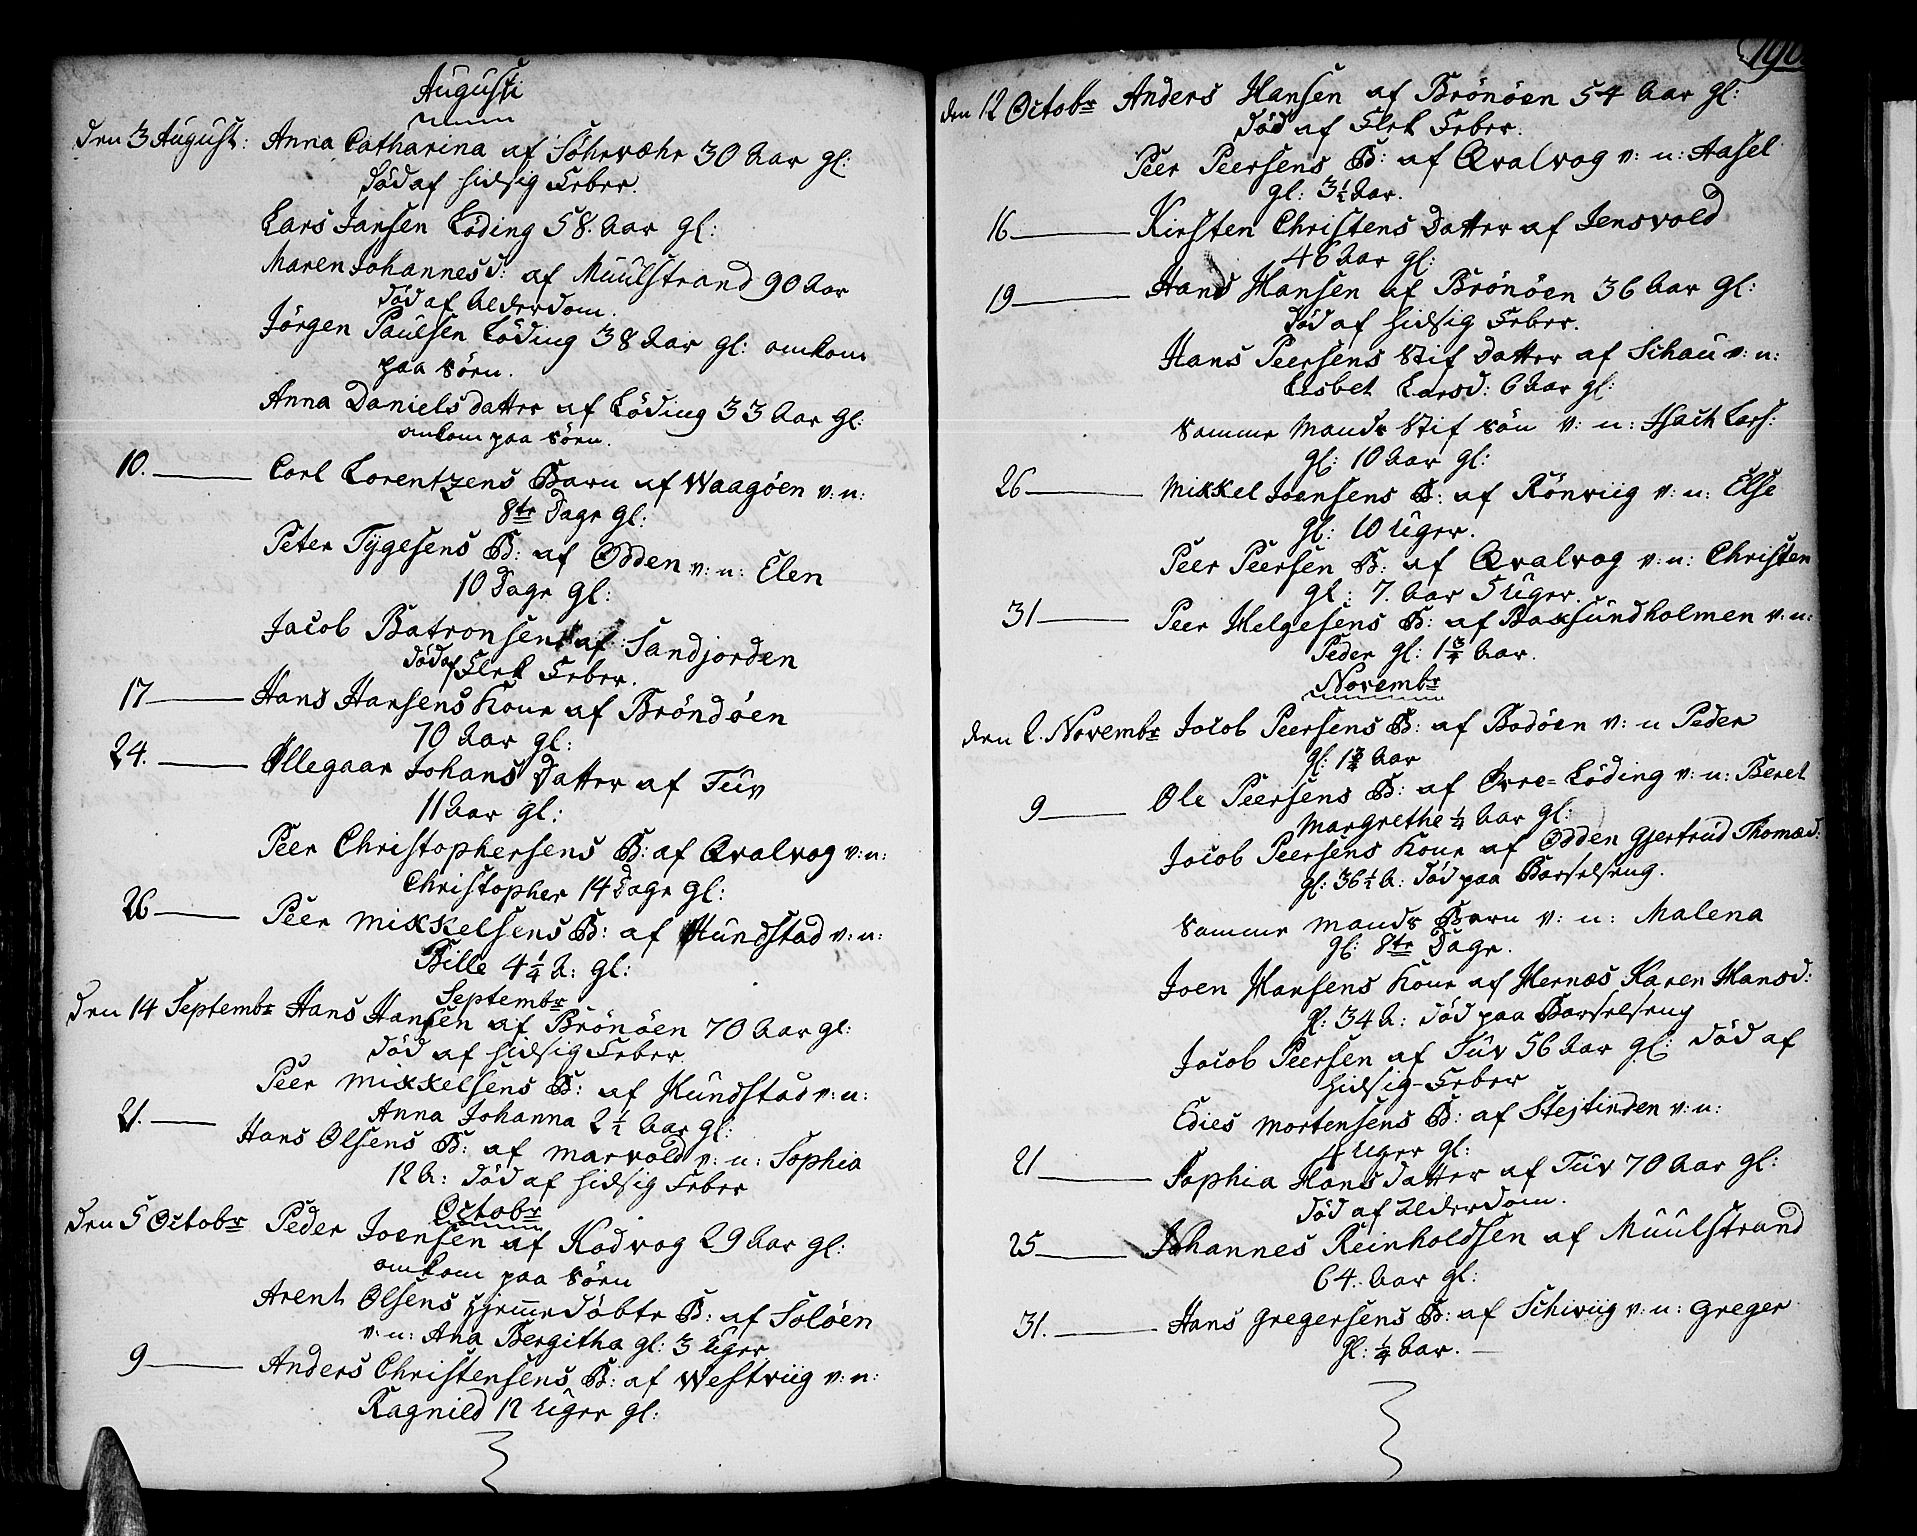 Augusti
den 3 August: Anna Catharina af Söhrvæhr 30 Aar gl:
död af hidsig Feber.
Lars Jansen Löding 58. Aar gl:
Maren Johannesd: af Muulstrand 90 Aar
död af Alderdom.
Jörgen Paulsen Löding 38 Aar gl: omkom
paa söen.
Anna Daniels datter af Löding 33 Aar gl:
omkom paa söen.
10. Carl Lorentzens Barn af Waagöen v: n:
8te Dage gl:
Peter Tygesens B: af Odden v: n: Elen
10 Dage gl:
Jacob Batronsen af Sandjorden
död af Flek Feber.
17 Hans Hansens Kone af Bröndöen
70 Aar gl:
24. Ollegaar Johans Datter af Tuv
11 Aar gl:
Peer Christophersens B: af Qvalvog v: n:
Christopher 14 Dage gl:
26 Peer Mikkelsens B: af Hundstad v: n:
Bille 4 1/4 A: gl:
Septembr
den 14 Septembr Hans Hansen af Brönöen 70 Aar gl:
död af hidsig Feber.
Peer Mikkelsens B: af Hundstad v: n:
Anna Johanna 2 1/2 Aar gl:
21. Hans Olsens B: af Marvold v: n: Sophia
12 A: död af hidsig Feber
Octobr
den 5 Octobr Peder Joensen af Kodvog 29 Aar gl:
omkom paa söen
Arent Olsens hjemedöbte B: af Solöen
v: n: Ana Bergitha gl: 3 Uger
9 Anders Christensens B: af Westviig v: n:
Ragnild 12 Uger gl:
190
den 12 Octobr Anders Hansen af Brönöen 54 Aar gl:
död af Flek Feber.
Peer Peersens B: af Qvalvog v: n: Aasel
gl: 3 1/2 Aar.
16 Kirsten Christens Datter af Jensvold
46 Aar gl:
19 Hans Hansen af Brönöen 36 Aar gl:
död af hidsig Feber.
Hans Peersens Stif Datter af Schau v: n:
Lisbet Larsd: 6 Aar gl:
Samme Mands Stif sön v: n: Isach Lars:
gl: 10 Aar gl:
26 Mikkel Joensens B: af Rönviig v: n: Else
gl: 10 Uger.
Peer Peersen B: af Qvalvog v: n: Christen
gl: 7. Aar 5 Uger.
31 Peer Helgesens B: af Baxsundholmen v: n:
Peder gl: 1 3/4 Aar.
Novembr
den 2. Novembr Jacob Peersens B: af Bodöen v: n Peder
gl: 1 3/4 Aar
9 Ole Peersens B: af Övre=Löding v: n: Beret
Margrethe 1/4 Aar gl:
Jacob Peersens Kone af Odden Gjertrud Thomæd:
gl: 36 1/2 A: död paa Barselseng.
Samme Mands Barn v: n: Malena
gl: 8te Dage.
Joen Hansens Kone af Hernæs Karen Hansd:
gl: 34 A: död paa Barselseng
Jacob Peersen af Tuv 56 Aar gl: död af
hidsig-Feber
Edies Mortensens B: af Stejtinden v: n:
4 Uger gl:
21 Sophia Hans datter af Tuv 70 Aar gl:
död af Alderdom.
25 Johannes Reinholdsen af Muulstrand
64. Aar gl:
31. Hans Gregersens B: af Schiviig v: n: Greger
gl: 1/4 Aar.